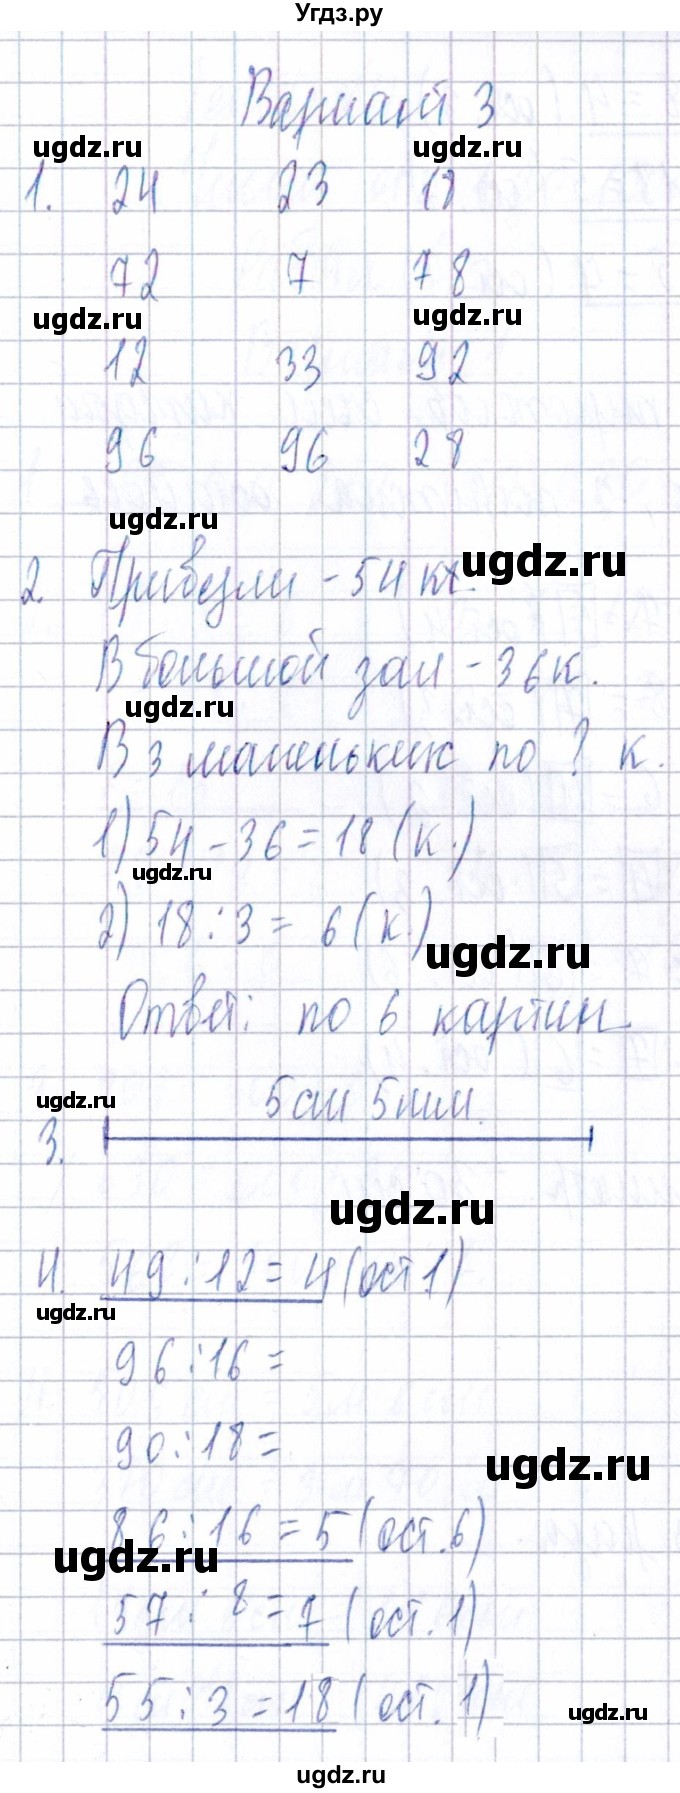 Угдз.ру
Вариант 3
ugdz.ru ugdz.ru
1. 24 23 18
72 7 78
ugdz.ru ugdz.ru
12 33 92
96 96 28
ugdz.ru
2. Привезли - 54 к. ugdz.ru
В большой зал - 36 к.
ugdz.ru
В 3 маленьких по ? к.
1) 54 - 36 = 18 (к.)
ugdz.ru
2) 18 : 3 = 6 (к.)
ugdz.ru
Ответ: по 6 картин
ugdz.ru 5 см 5 мм.
3.
ugdz.ru
4. 49 : 12 = 4 (ост 1)
ugdz.ru
96 : 16 =
90 : 18 =
ugdz.ru
86 : 16 = 5 (ост. 6)
ugdz.ru
57 : 8 = 7 (ост. 1)
55 : 3 = 18 (ост. 1)
ugdz.ru
ugdz.ru